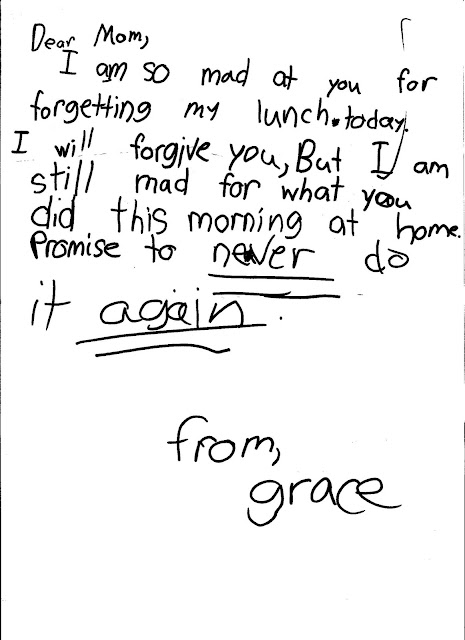 Dear Mom,
I am so mad at you for
forgetting my lunch.today.
I will forgive you, But I am
still mad for what you
did this morning at home.
Promise to never do
it again.
from,
grace